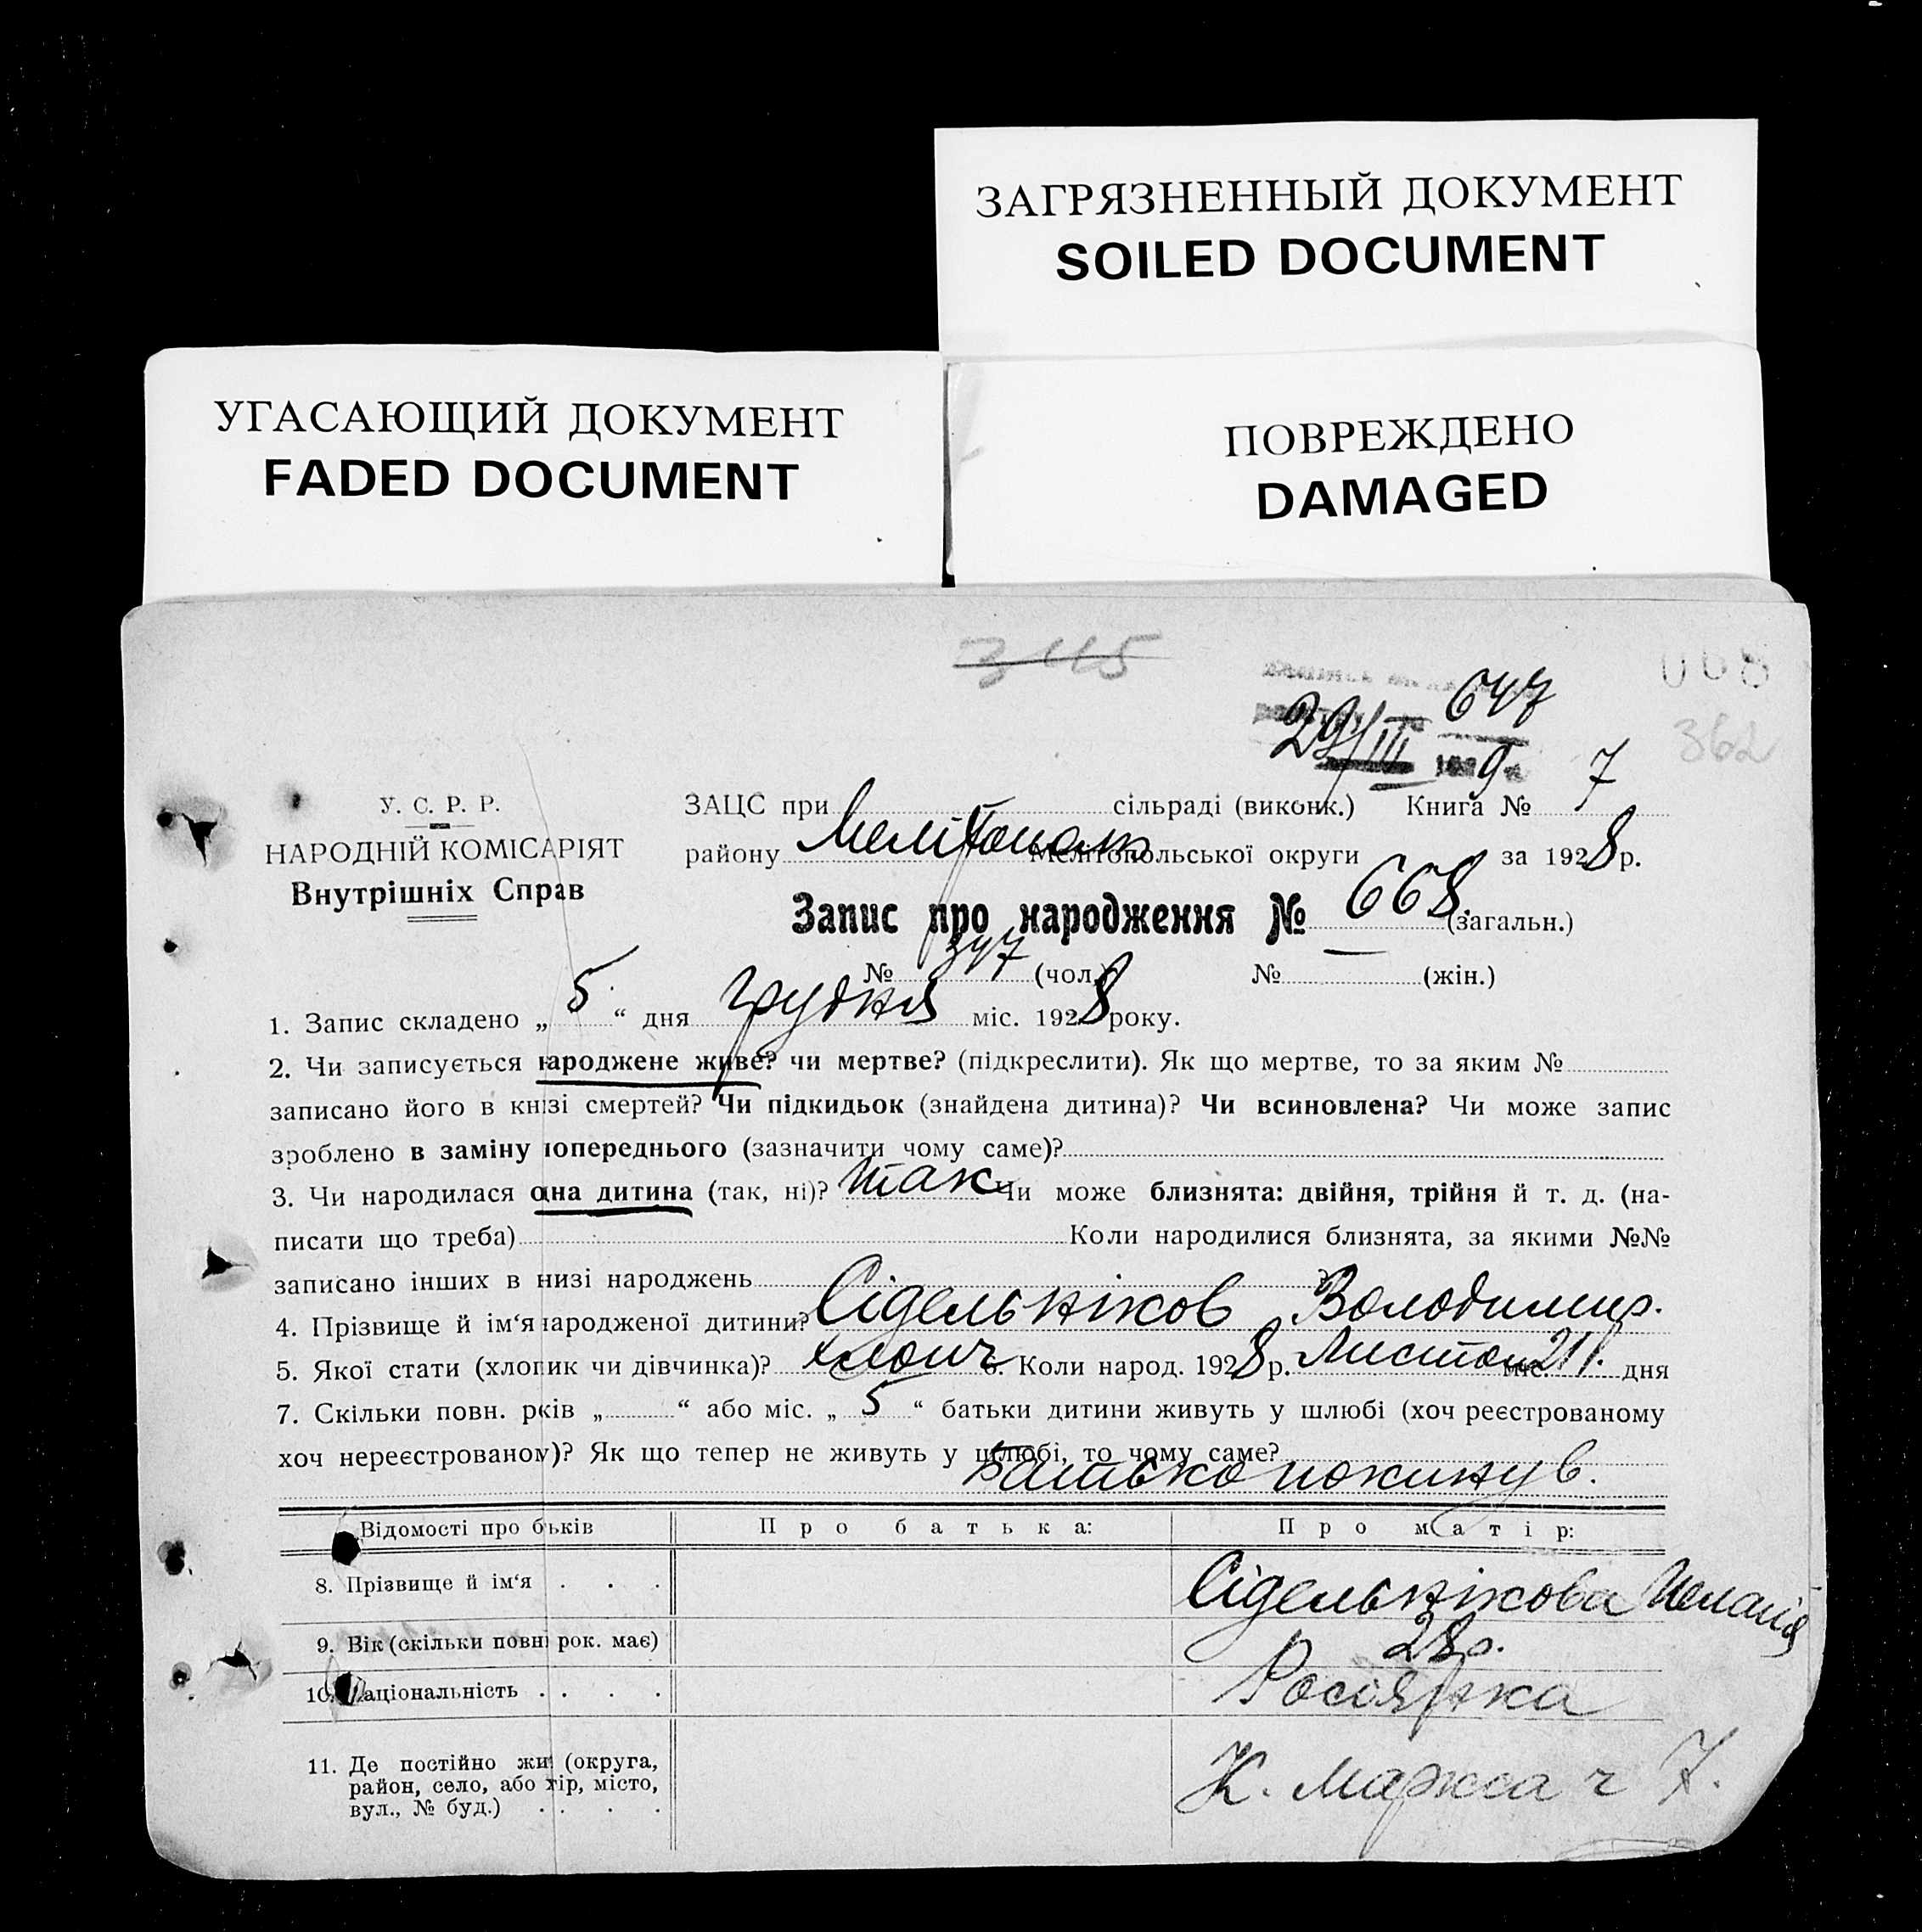 ЗАГРЯЗНЕННЫЙ ДОКУМЕНТ
SOILED DOCUMENT
УГАСАЮЩИЙ ДОКУМЕНТ
FADED DOCUMENT
ПОВРЕЖДЕНО
DAMAGED
3115
068
647
29/III 1929
362
У. С. Р. Р.
НАРОДНІЙ КОМІСАРІЯТ
Внутрішніх Справ
ЗАЦС при сільраді (виконк.) Книга № 7
району Мелітополь Мелітопольської округи за 1928 р.
Запис про народження № 668 (загальн.)
№ 347 (чол.) № (жін.)
1. Запис складено „ 5 “ дня грудня міс. 1928 року.
2. Чи записується народжене живе? чи мертве? (підкреслити). Як що мертве, то за яким №
записано його в кнізі смертей? Чи підкидьок (знайдена дитина)? Чи всиновлена? Чи може запис
зроблено в заміну попереднього (зазначити чому саме)?
3. Чи народилася одна дитина (так, ні)? так Чи може близнята: двійня, трійня й т. д. (на-
писати що треба) Коли народилися близнята, за якими №№
записано інших в книзі народжень ?
4. Прізвище й ім‘я народженої дитини? Сідельніков Володимир.
5. Якої стати (хлопик чи дівчинка)? хлопч 6. Коли народ. 1928 р. Листоп міс. 21 дня
7. Скільки повн. років „ “ або міс. „ 5 “ батьки дитини живуть у шлюбі (хоч реєстрованому
хоч нереєстрованому)? Як що тепер не живуть у шлюбі, то чому саме?
Батько покинув.
Відомості про батьків Про батька: Про матір:
8. Прізвище й ім‘я . . . Сідельнікова
9. Вік (скільки повн. рок. має) 28 р.
10. Національність . . . . Росіянка
11. Де постійно жив (округа,
район, село, або хутір, місто,
вул., № буд.) . . . . К. Маркса ч 7.